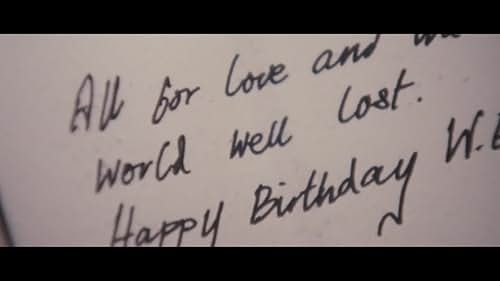 All for love and
world well lost.
Happy Birthday W.